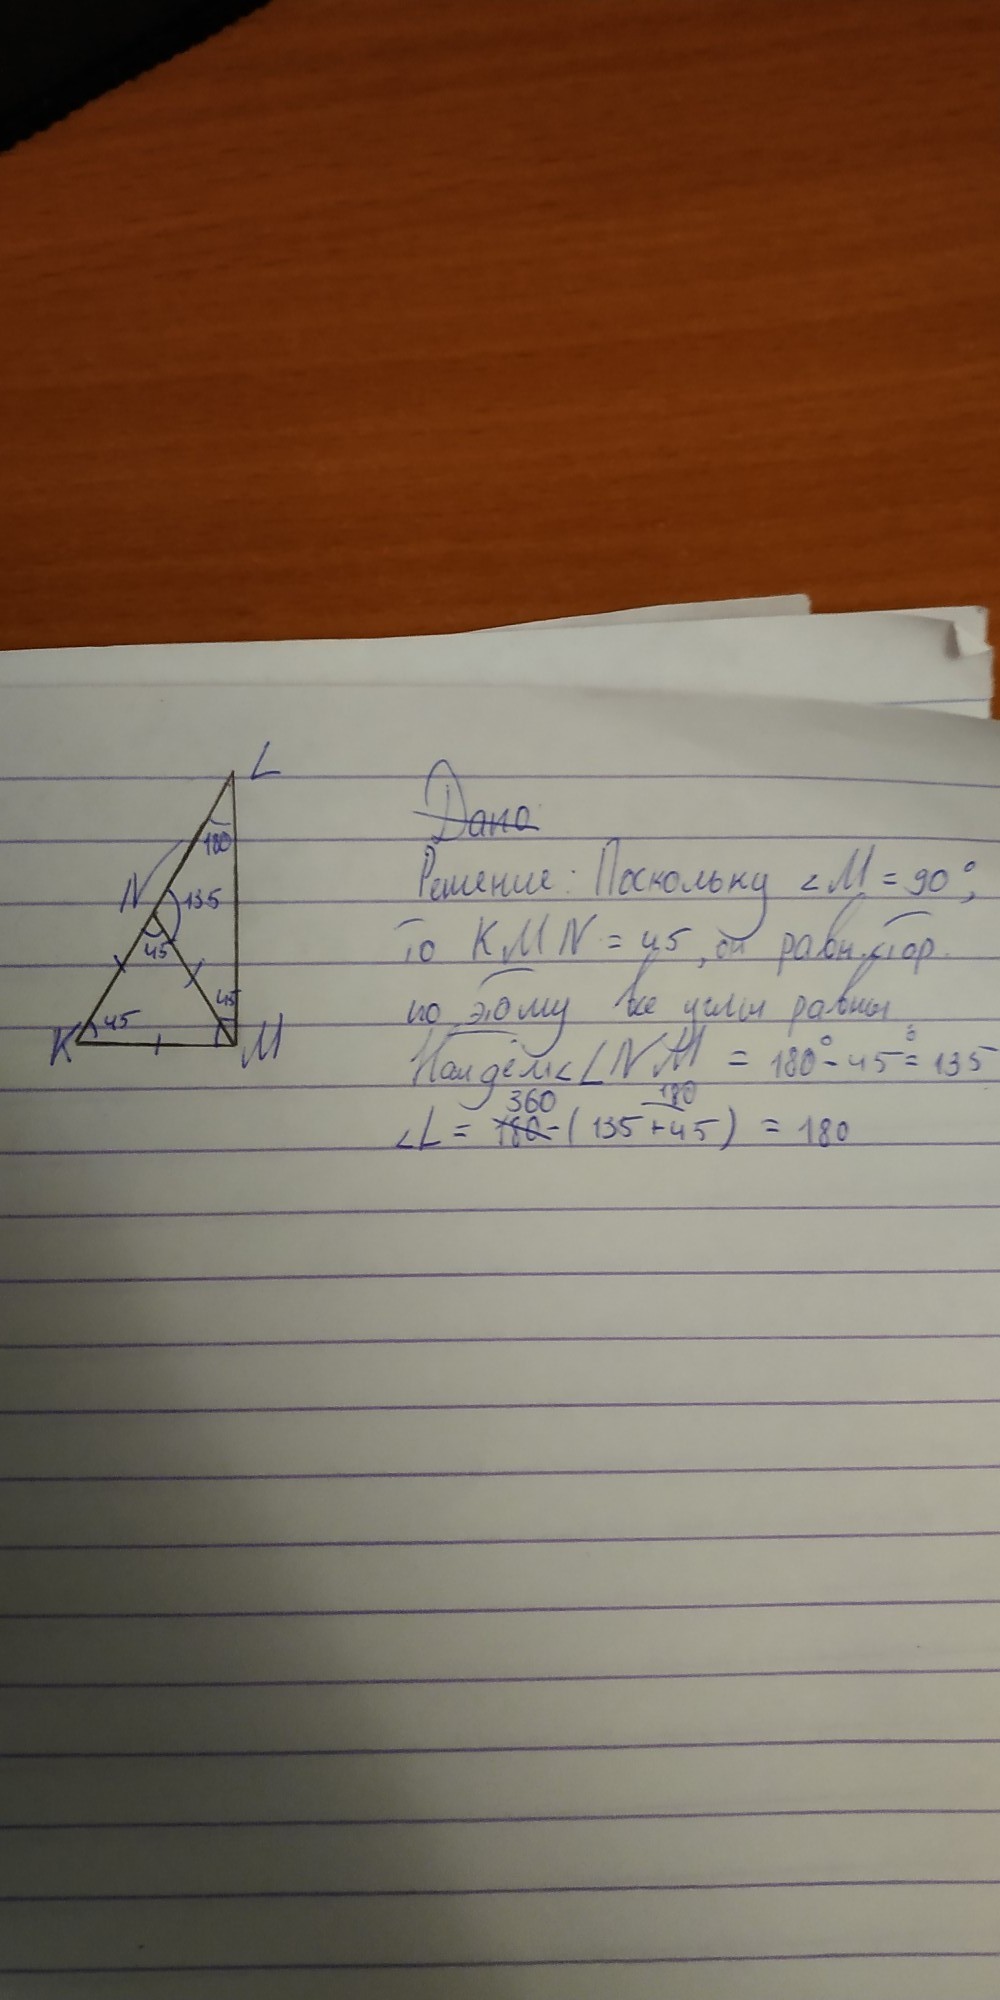 L
180
N 135
45
45
K 45 M
Дано
Решение: Поскольку ∠M = 90°,
то KMN = 45, он равн.стор.
по этому все углы равны
Найдём ∠LNM = 180° - 45° = 135
360 180
∠L = 180 - (135 + 45) = 180